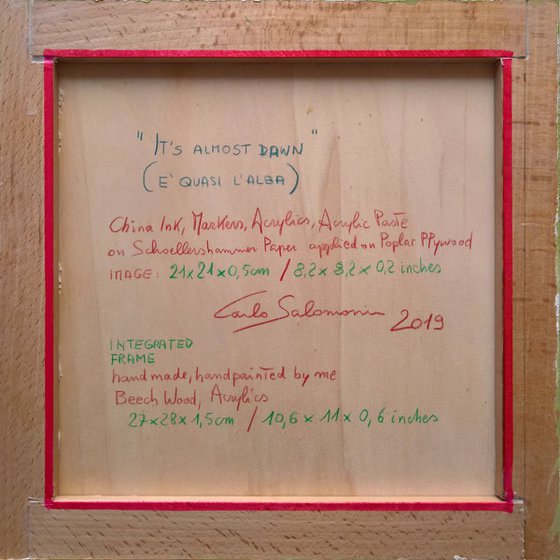 "IT'S ALMOST DAWN"
(E' QUASI L'ALBA)
China Ink, Markers, Acrylics, Acrylic Paste
on Schoellershammer Paper applied on Poplar PPywood
IMAGE: 21x21x0,5cm / 8,2x 8,2x 0,2 inches
Carlo Salomoni 2019
INTEGRATED
FRAME
hand made, handpainted by me
Beech Wood, Acrylics
27x28x1,5cm / 10,6 x 11 x 0,6 inches